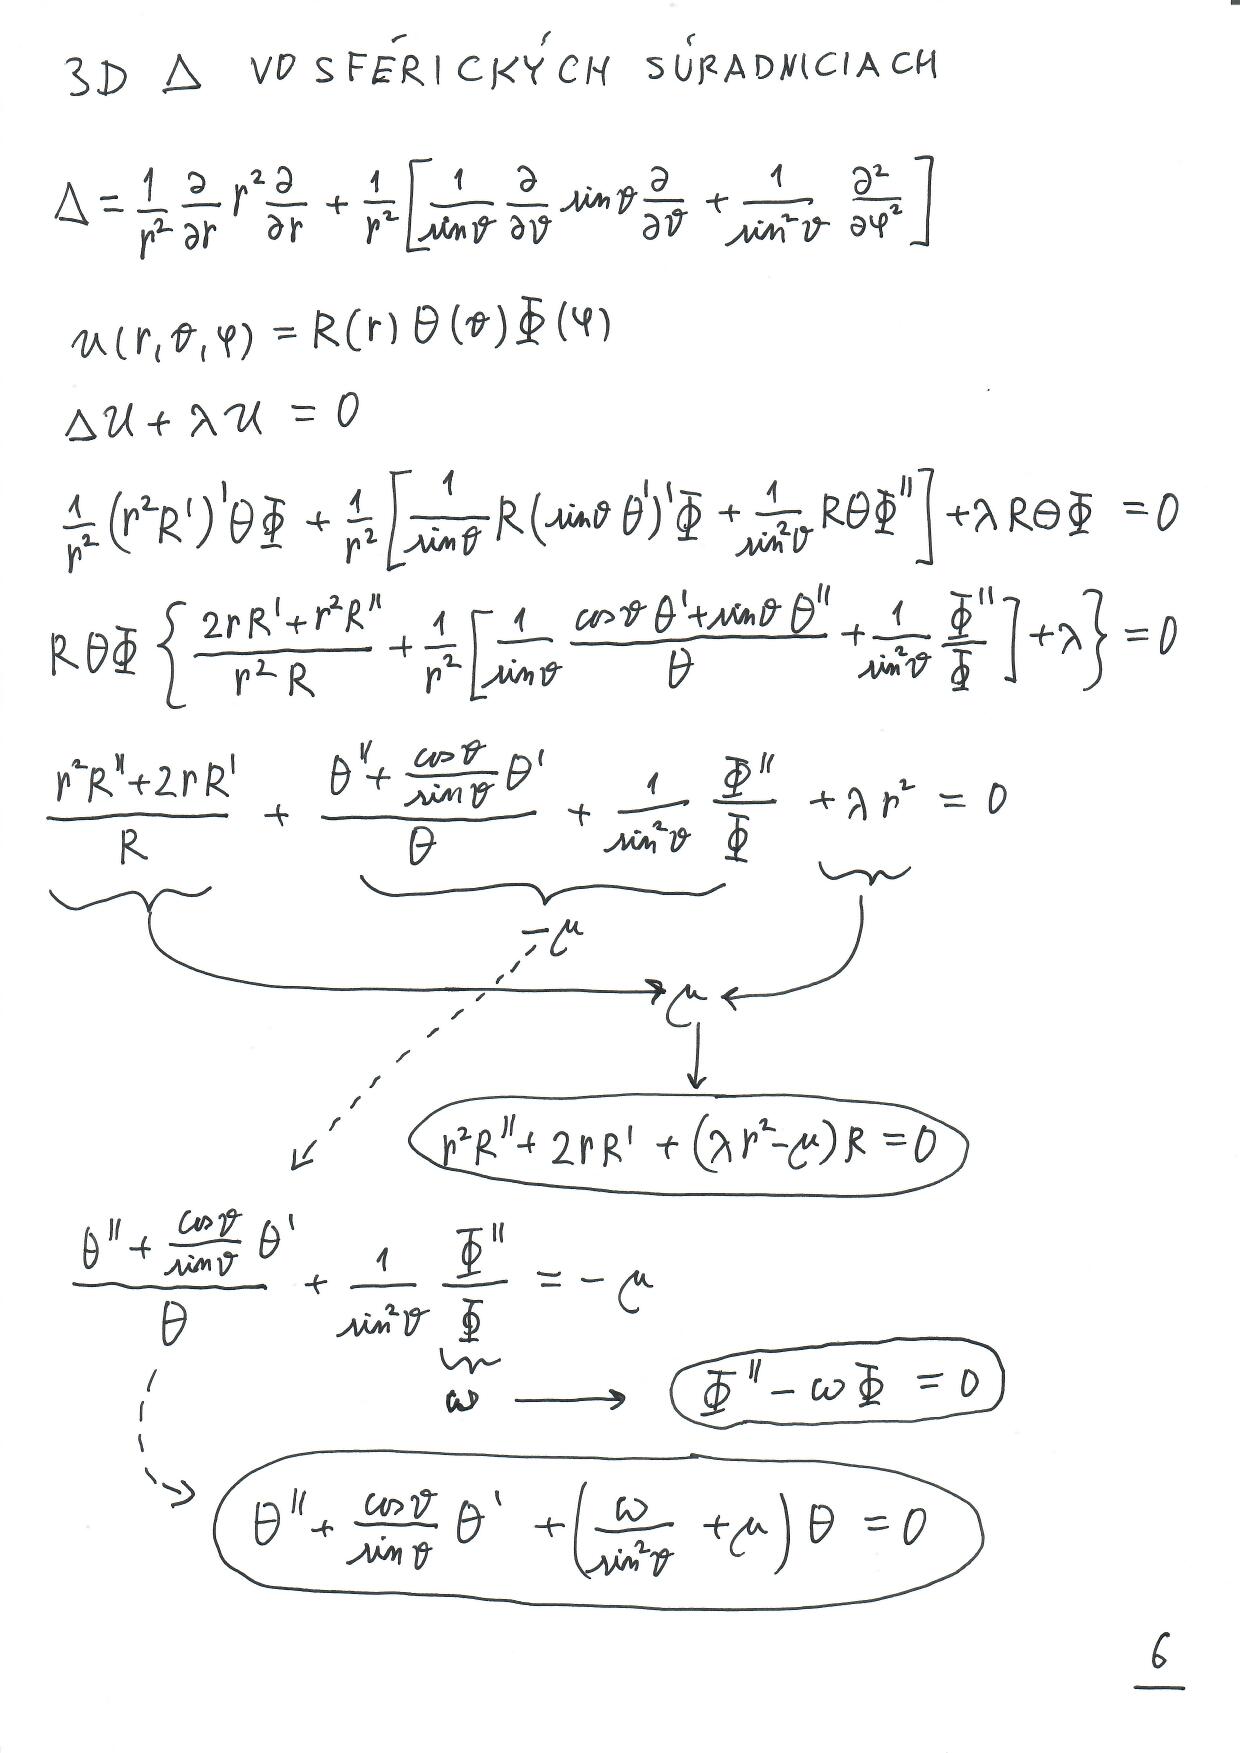 3D Δ VO SFÉRICKÝCH SÚRADNICIACH
Δ = 1/r² ∂/∂r r² ∂/∂r + 1/r² [ 1/sinϑ ∂/∂ϑ sinϑ ∂/∂ϑ + 1/sin²ϑ ∂²/∂φ² ]
u(r,ϑ,φ) = R(r) Θ(ϑ) Φ(φ)
Δu + λu = 0
1/r² (r²R')'ΘΦ + 1/r² [ 1/sinϑ R(sinϑ Θ')'Φ + 1/sin²ϑ RΘΦ'' ] + λRΘΦ = 0
RΘΦ { (2rR' + r²R'')/(r²R) + 1/r² [ 1/sinϑ (cosϑ Θ' + sinϑ Θ'')/Θ + 1/sin²ϑ Φ''/Φ ] + λ } = 0
(r²R'' + 2rR')/R + (Θ'' + cosϑ/sinϑ Θ')/Θ + 1/sin²ϑ Φ''/Φ + λr² = 0
-μ
μ
r²R'' + 2rR' + (λr² - μ)R = 0
(Θ'' + cosϑ/sinϑ Θ')/Θ + 1/sin²ϑ Φ''/Φ = -μ
ω → Φ'' - ωΦ = 0
Θ'' + cosϑ/sinϑ Θ' + (ω/sin²ϑ + μ) Θ = 0
6